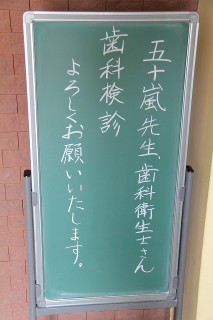 五十嵐先生、歯科衛生士さん
歯科検診
よろしくお願いいたします。